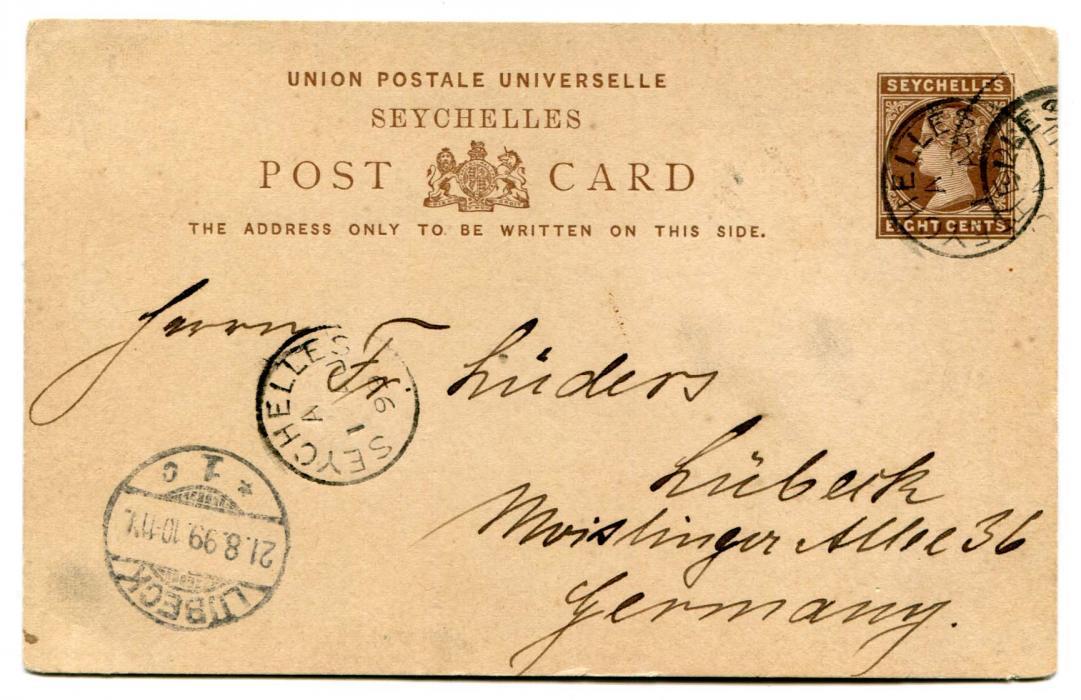 UNION POSTALE UNIVERSELLE
SEYCHELLES
POST CARD
THE ADDRESS ONLY TO BE WRITTEN ON THIS SIDE.
SEYCHELLES
EIGHT CENTS
Herrn Fr. Lüders
Lübeck
Moislinger Allee 36
Germany.
SEYCHELLES
A
LÜBECK
21.8.99. 10-11V.
* 1 c